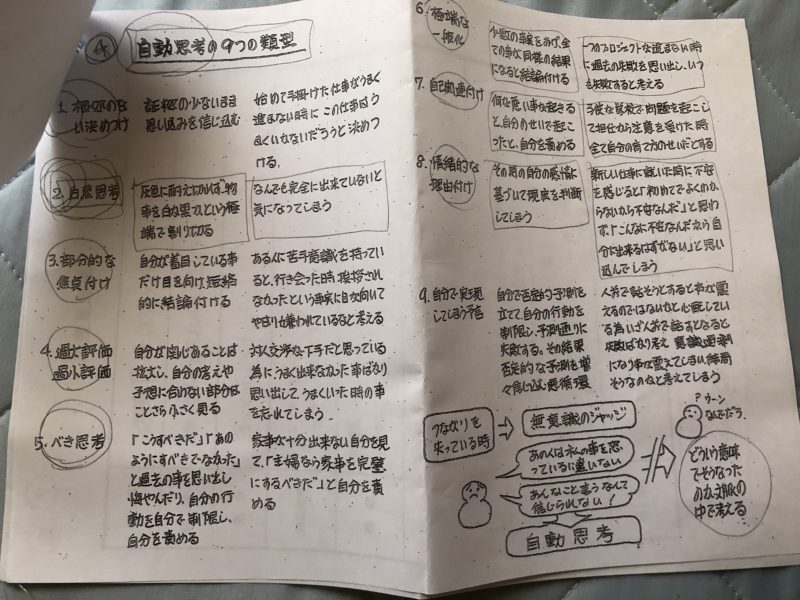 ④ 自動思考の9つの類型
1. 根拠のな
い決めつけ
証拠の少ないまま
思い込みを信じ込む
始めて手掛けた仕事がうまく
進まない時にこの仕事はう
まくいかないだろうと決めつ
ける.
2. 白黒思考
灰色に耐えられず、物
事を白か黒かという極
端で割り切る
なんでも完全に出来ていないと
気になってしまう
3. 部分的な
焦点付け
自分が着目している事
だけ目を向け、短絡
的に結論付ける
ある人に苦手意識を持ってい
ると、行き会った時挨拶され
なかったという事実に目が向いて
やはり嫌われているなと考える
4. 過大評価
過小評価
自分が関心あることは
拡大し、自分の考えや
予想に合わない部分は
ことさら小さく見る
対人交渉な下手だと思っている
為にうまく出来なかった事ばかり
思い出して、うまくいった時の事
を忘れてしまう.
5. べき思考
「こうすべきだ」「あの
ようにすべきでなかった」
と過去の事を思い出し
悔やんだり、自分の行
動を自分で制限し、
自分を責める
家事な十分出来ない自分を見
て、「主婦なら家事を完璧
にするべきだ」と自分を責
める
6. 極端な
一般化
少数の事実をあげ、全
ての事が同様の結果
になると結論付ける
一つのプロジェクトな進まない時
に過去の失敗を思い出し、いつ
も失敗すると考える
7. 自己関連付け
何か悪い事が起きる
と自分のせいで起こ
ったと、自分を責める
子供な学校で問題を起こし
て担任から注意を受けた時
全て自分の育て方のせいだとする
8. 情緒的な
理由付け
その時の自分の感情に
基づいて現実を判断
してしまう
新しい仕事に就いた時に不安
を感じると「初めてでよくわか
らないから不安なんだ」と思わ
ず、「こんなに不安なんだから自
分に出来るはずがない」と思い
込んでしまう
9. 自分で実現
してしまう予言
自分で否定的予測を
立て、自分の行動を
制限し、予測通りに
失敗する。その結果
否定的な予測を増
々信じ込む悪循環
人前で話そうとすると声な震
えるのではないかと心配してい
る為いざ人前で話すとなると
失敗ばかり考え 意識過剰
になり声な震えてしまい、結局
そうなのなと考えてしまう
つながりを
失っている時
無意識のジャッジ
あの人は私の事を怒
っているに違いない
あんなこと言うなんて
信じられない!
自動思考
? ウーン
なんでだろ.
どういう意味
でそうなった
のか文脈の
中で考える